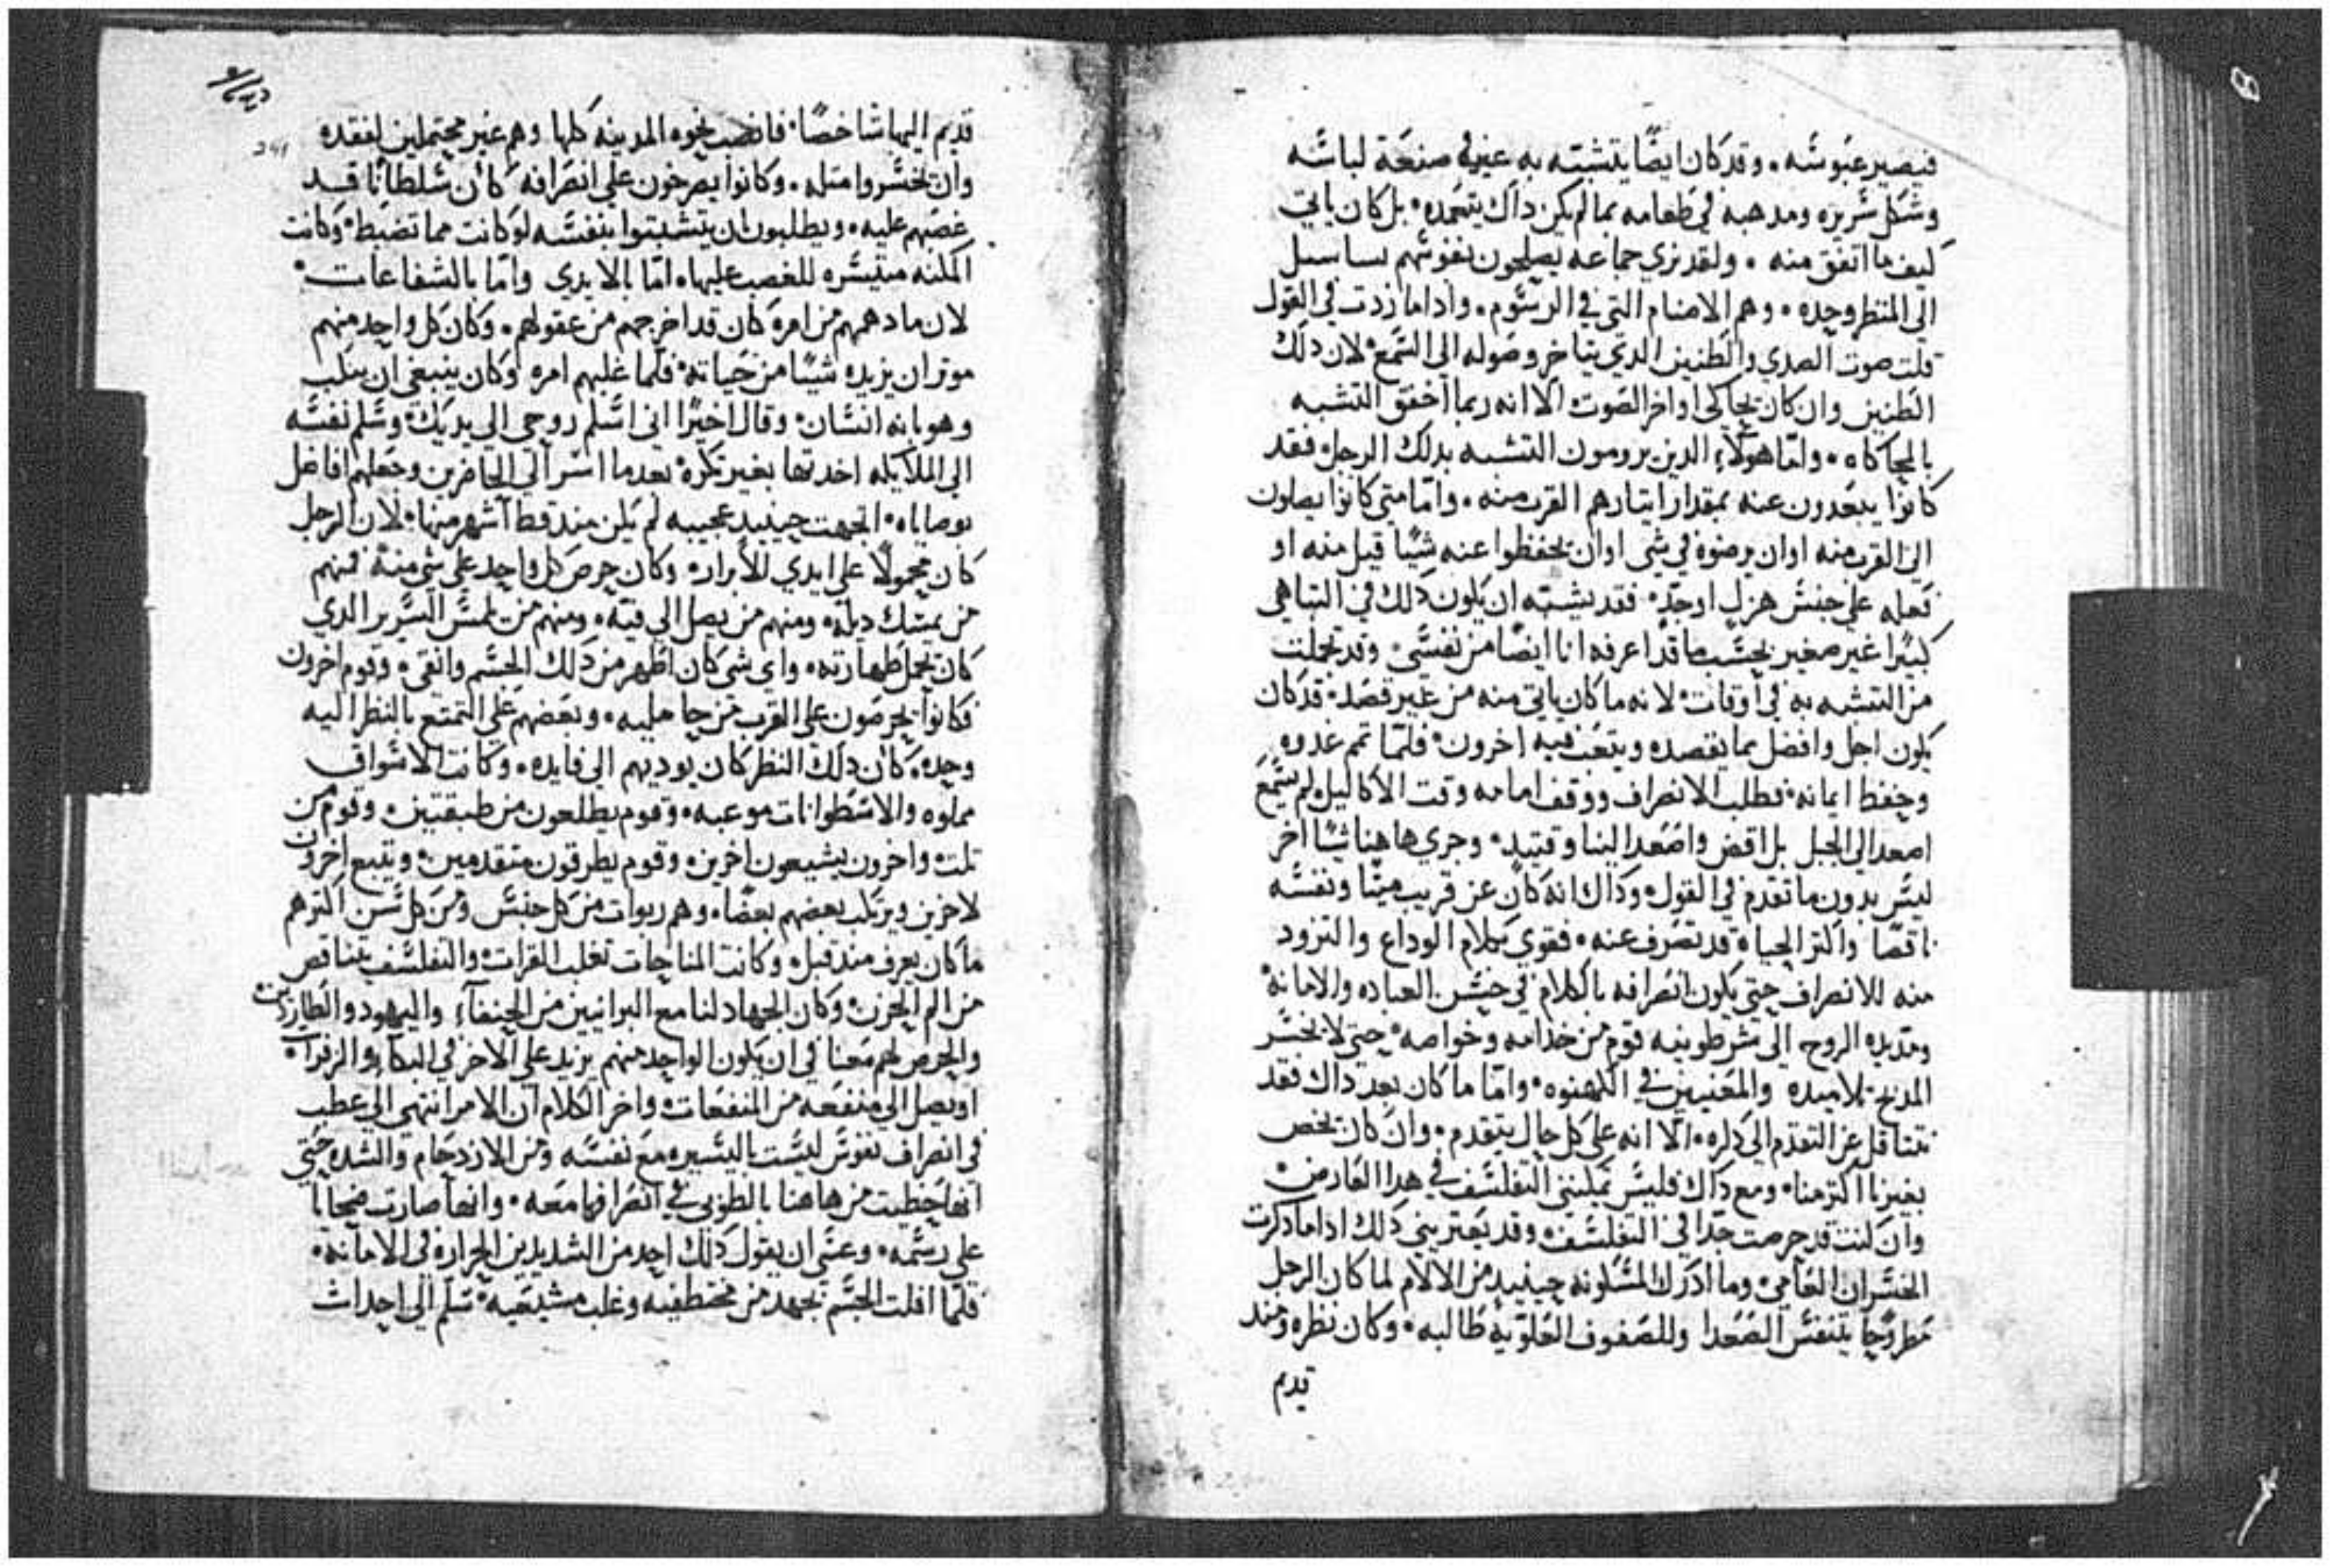 فيصير عبوسًه. وقد كان ايضًا يتشبّه به غيره في صنعة لباسًه
وشكل سًريره ومدهبه في طعامه بما لم يكن داك يتعمده. بل كان ياتي
كيف ما اتفق منه. ولقد نري جماعه يصلحون نفوسًهم
الي المنظر وحده. وهم الاصنام التي في الرسًوم. وادا ما زدت في القول
قلت صوت الصدي والطنين الدي يتاخر وصوله الي السًمع لان دلك
الطنين وان كان يحاكي اواخر الصوت الا انه ربما اخفق التشبه
بالمحاكاه. وامّا هولاء الدين يرومون التشبه بدلك الرجل فقد
كانوا يبعدون عنه بمقدار ايتارهم القرب منه. وامّا متي كانوا يصلون
الي القرب منه او ان يرضوه في شي او ان يحفظوا عنه شيًا قيل منه او
فعله علي جنسً هزل او جدّ. فقد يشبه ان يكون دلك في التباهي
كبيرًا غير صغير بحسًب ما قد اعرفه انا ايضًا من نفسًي وقد تحملت
من التشبه به في اوقات لانه ما كان ياتي منه من غير قصد. قد كان
يكون اجل وافضل مما يقصده ويتعب فيه اخرون. فلمّا تمم غدوه
وحفظ ايمانه. فطلب الانصراف ووقف امامه وقت الاكاليل لم يسًمع
اصعد الي الجبل بل اقض واصعد الينا وقتيد. وجري هاهنا شيًا اخر
ليسً بدون ما تقدم في القول. وداك انه كان عن قريب ميتًا ونفسًه
ناقصًا واكتر الحياه قد تصرف عنه. فقوي بكلام الوداع والتزود
منه للانصراف حتي يكون انصرافه بالكلام في حسًن العباده والامانه
ومدّ يده الروح الي شرطونيه قوم من خدامه وخواصه. حتي لا يخسًر
المدبح تلاميده والمعنيين في الكهنوه. وامّا ما كان بعد داك فقد
نتتاقل عن التقدم الي دكره. الا انه علي كل حال يتقدم. وان كان يخص
بغيرنا اكتر منا. ومع داك فليسً يمكنني التفلسًف في هدا العارض
وان كنت قد حرصت جدًا في التفلسًف وقد يعتريني دلك ادا ما دكرت
الخسًران العامي وما ادرك المسًكونه حينيد من الالام لما كان الرجل
مطروحًا يتنفسً الصعدا وللصفوف العلويه طالبه. وكان نظره ومند
قديم
قديم اليها شاخصًا. فانصب نحوه المدينه كلها وهم غير محتملين لفقده
وان يخسًروا متله. وكانوا يصرخون علي انصرافه كان سًلطانًا قد
غصبهم عليه. ويطلبون ان يتشبتوا بنفسًه لو كانت مما تضبط. وكانت
اكلنه متيسًره للغصب عليها. امّا بالايدي وامّا بالشفاعات.
لان ما دهمهم من امره كان قد اخرجهم من عقولهم. وكان كل واحد منهم
موتر ان يزيده شيًا من حياته. فلما غلبهم امره وكان ينبغي ان يتلب
وهو بانه انسًان. وقال اخيرًا اني اسًلم روحي الي يديك. وسًلم نفسًه
الي الملايكه اخدتها بغير تكره. بعد ما اسًر الي الحاضرين وجعلهم افاضل
بوصاياه. اتجهت حينيد عجيبه لم يكن مند قط اشهر منها. لان الرجل
كان محمولًا علي ايدي للابرار. وكان حرص كل واحد علي شي منه فمنهم
من يمسًك ديله. ومنهم من يصل الي فيه. ومنهم من يلمسً السًرير الدي
كان يحمل طهارته. واي شي كان اطهر من دلك الجسًم وانقي. وقوم اخرون
فكانوا يحرصون علي القرب من حامليه. وبعضهم علي التمتع بالنظر اليه
وحده. كان دلك النظر كان يوديهم الي فايده. وكانت الاسًواق
مملوه والاسًطوانات موعبه. وقوم يطلعون من طبقتين. وقوم من
تلت. واخرون يشيعون اخرين. وقوم يطرقون متقدمين. ويتبع اخرون
لاخرين ويركب بعضهم بعضًا. وهم ربوات من كل جنسً ومن كل سًن اكترهم
ما كان يعرف مند قبل. وكانت المناحات تغلب القرات. والتفلسًف يتناقص
من الم الحزن. وكان الجهاد لنا مع البرانيين من الحنفاء واليهود والطاريين
والحرص لهم معنا في ان يكون الواحد منهم يزيد علي الاخر في البكا والزفرات.
او يصل الي منفعه من المنفعات. واخر الكلام ان الامر انتهي الي عطب
في انصراف نفوسً ليسًت باليسًيره مع نفسًه ومن الازدحام والشده حتي
انها حظيت من هاهنا بالطوبي في انصرافها معه. وانها صارت ضحايا
علي رسًمه. وعسًي ان يقول دلك احد من الشديدين الحراره في الامانه.
فلمّا افلت الجسًم بجهد من مختطفيه وغلب مشيعيه. تسًلم الي احدات